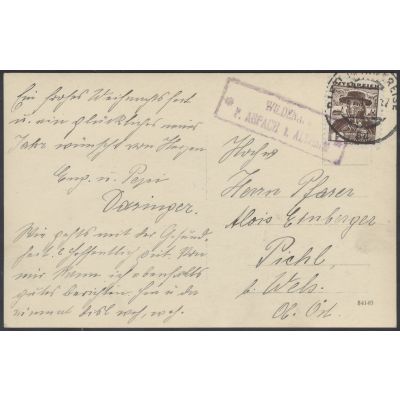 Ein frohes Weihnachtsfest
u. ein glückliches neues
Jahr wünscht von Herzen
u. Pepi
Daringer.
Wie gehts mit der Gesund-
heit? Hoffentlich gut. Von
mir kann ich ebenfalls
gutes berichten. hie u. da
zimmat disl weh, weh.
WILDENAU
P. ASPACH
ÖSTERREICH
Hochw
Herrn Pfarrer
Alois Etnberger
Pichl,
b. Wels.
Ob. Öst.
84140